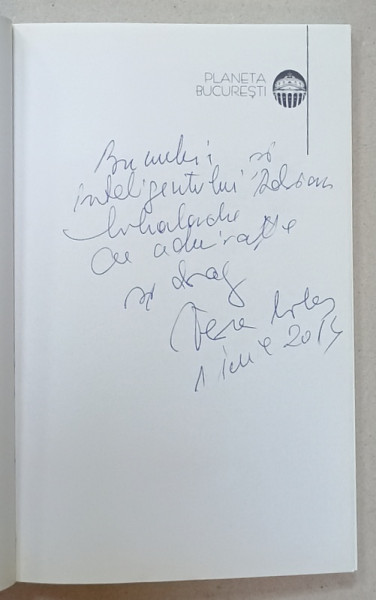 PLANETA
BUCUREȘTI
Bunului și
inteligentului Adrian
cu admirație
și drag
1 iunie 2014